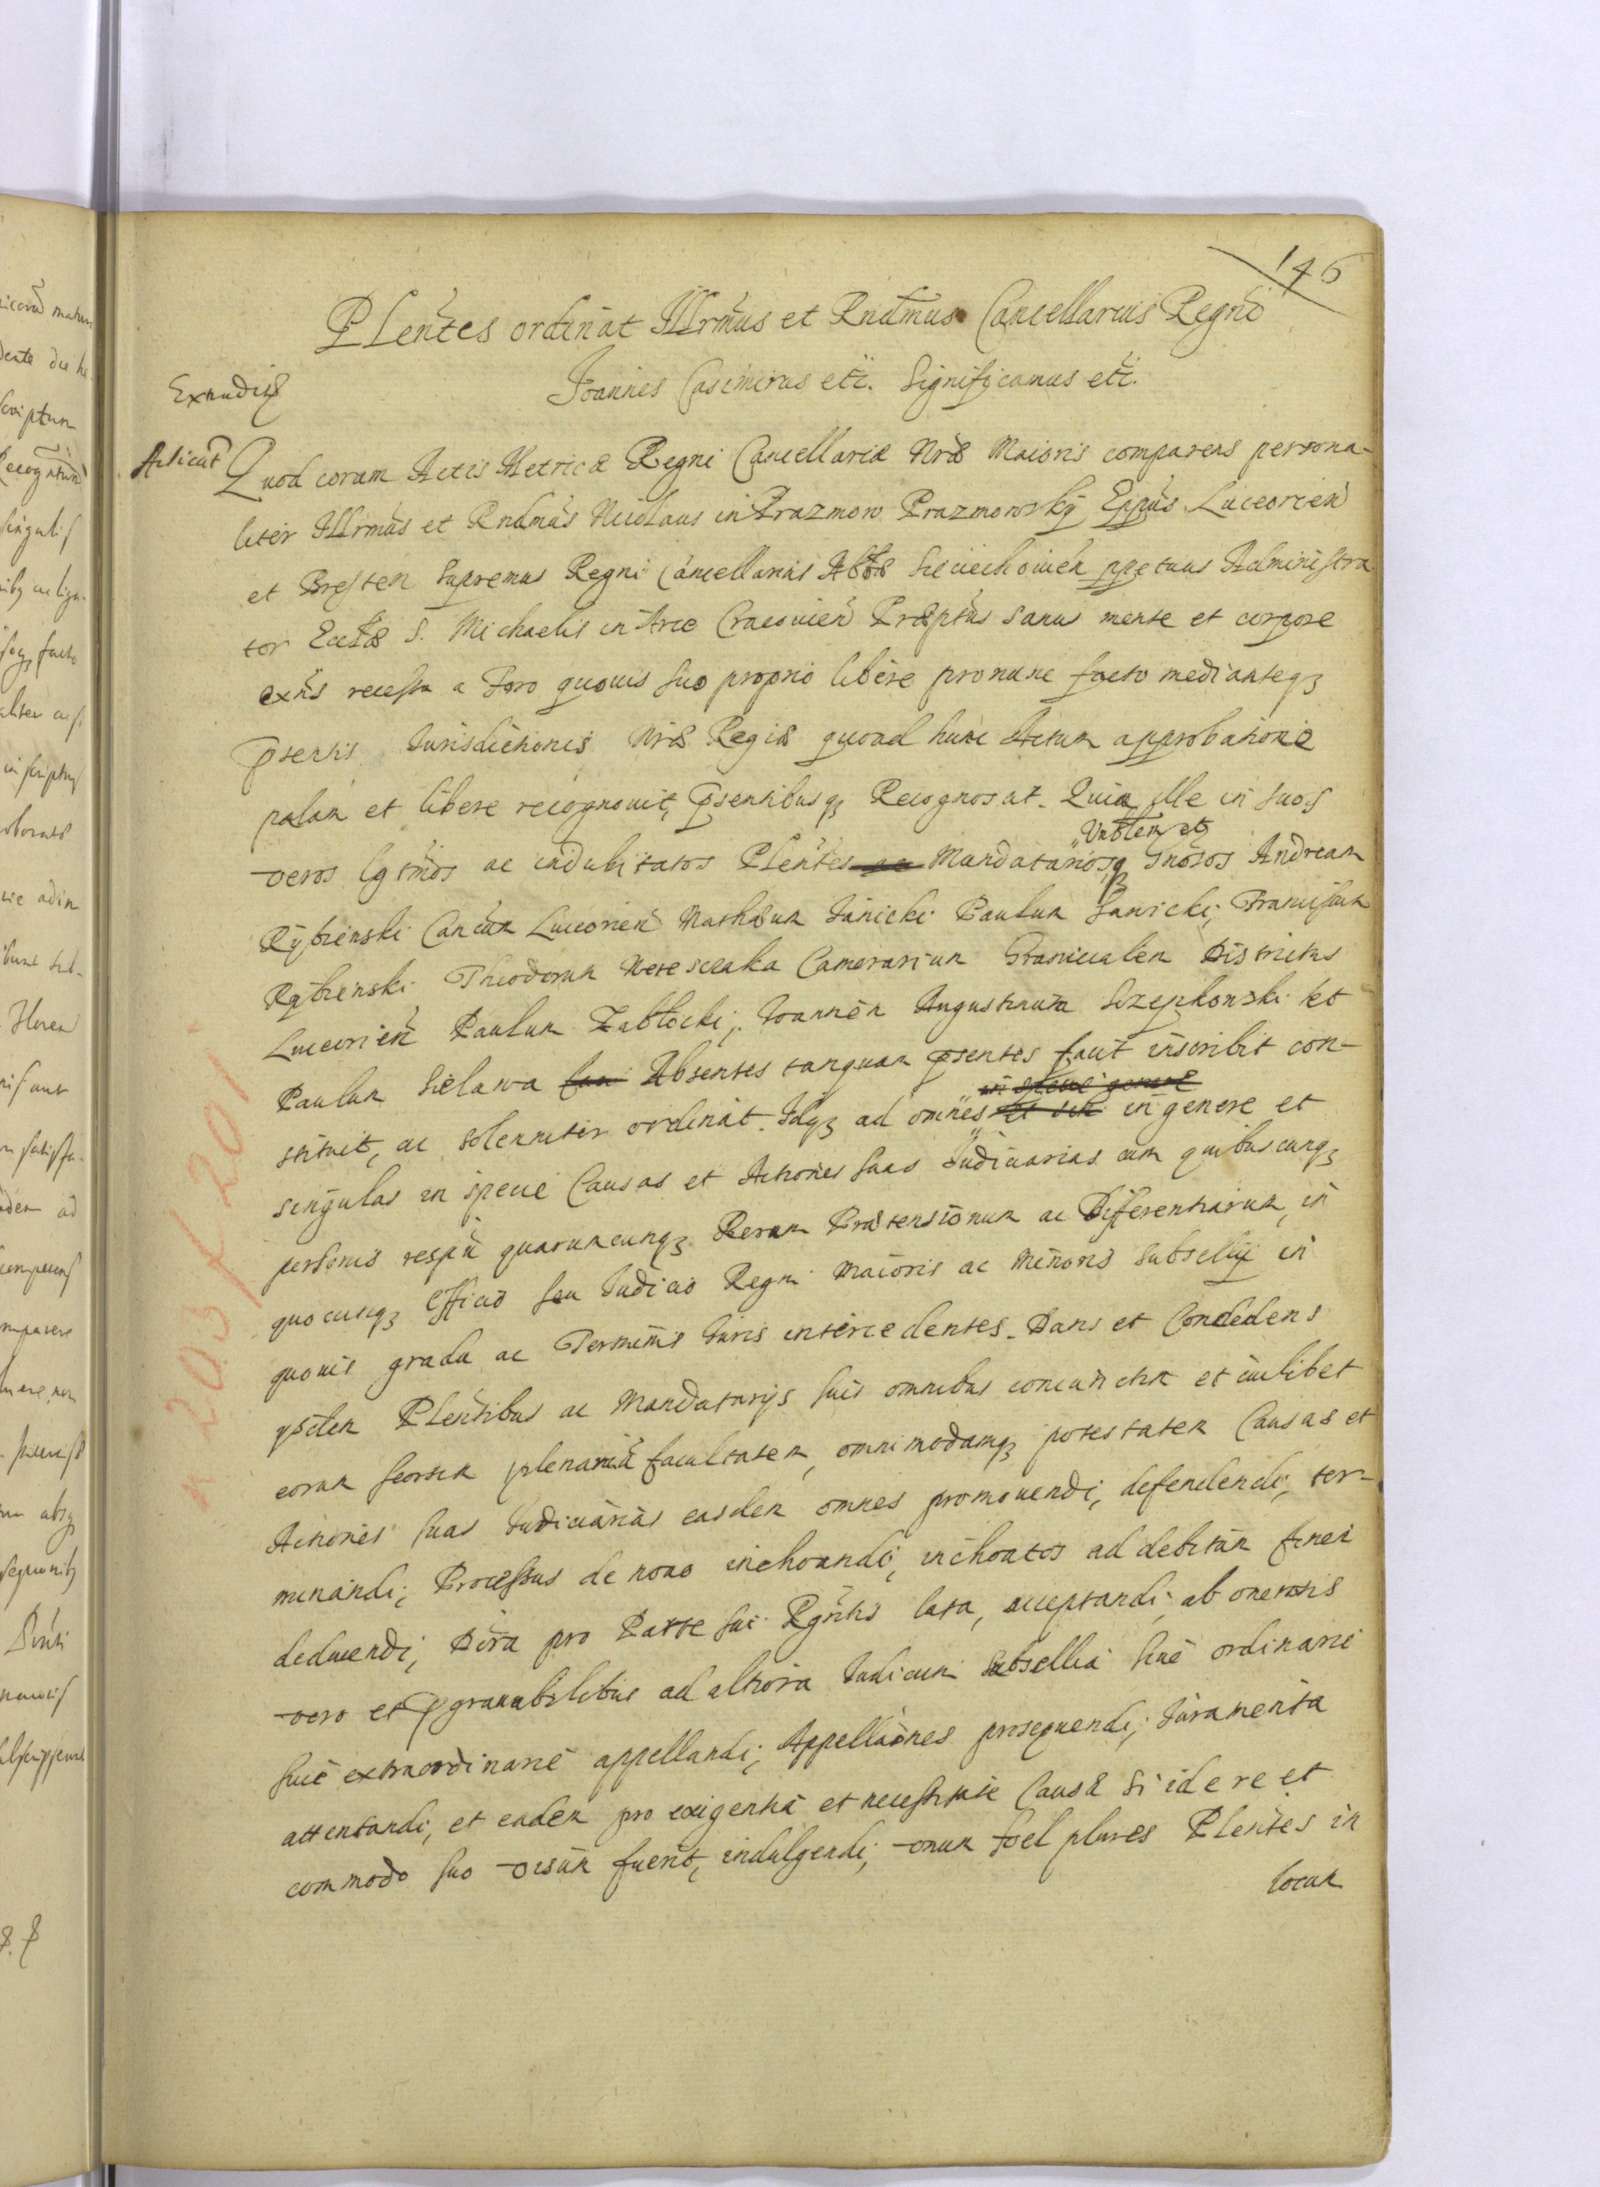 146
Plentes ordinat Illrmus et Rndmus Cancellarius Regni
Joannes Casimirus etc. Significamus etc.
Acticat Quod coram Actis Metricæ Regni Cancellariæ Nræ Maioris comparens persona-
liter Illrmus et Rndmus Nicolaus in Prazmow Prazmowsky Eppus Luceorien
et Bresten Supremus Regni Cancellarius Abbtæ Sieciechouien ppetuus Administra
tor Ecclæ S. Michaelis in Arce Cracouien Præptus sanus mente et corpore
exns recessu a Foro quouis suo proprio libere pronunc facto medianteq3
psentis Jurisdictionis Nræ Regiæ quoad hunc Actum approbatione
palam et libere recognouit, psentibusq3 Recognoscit. Quia ille in suos
Vnblem et
veros lgtmos ac indubitatos Plentes ac Mandatarios, Gnosos Andream
Rybienski Cancum Luceorien Mathæum Janicki Paulum Sawicki, Franciscum
Rybienski Theodorum Camerarium Granicialem Districtus
Luceorien Paulum Zabłocki, Joannem Augustinum Szczepkowski et
Paulum Sielawa Absentes tanquam psentes facit inscribit con-
in specie genere
stituit, ac solenniter ordinat. Idq3 ad omnes et sin in genere et
singulas in specie Causas et Actiones suas Judiciarias cum quibuscunq3
personis respu quarumcunq3 Rerum Prætensionum ac Differentiarum, in
quocunq3 Officio seu Judicio Regni Maioris ac Minoris Subsellij in
quouis gradu ac Terminis Juris intercedentes. Dans et Concedens
ysdem Plentibus ac Mandatarijs suis omnibus coniunctim et cuilibet
eorum seorsim plenariã facultatem, omnimodamq3 potestatem Causas et
Actiones suas Judiciarias easdem omnes promouendi, defendendi, ter-
minandi, Processus de nouo inchoandi, inchoatos ad debitum finem
deducendi, Dcra pro Parte sui Pgntis lata, acceptandi, ab onerosis
vero et pgrauabilibus ad altiora Judicum Subsellia siue ordinarie
siue extraordinarie appellandi, Appellaones prosequendi, Juramenta
attentandi, et eadem pro exigentia et necessitate Causæ si id e re et
commodo suo visum fuerit, indulgendi, vnum vel plures Plentes in
locum